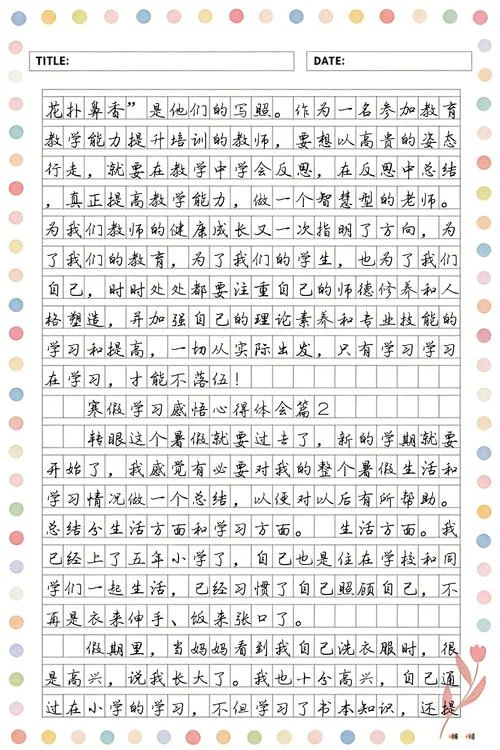 TITLE:
DATE:
花扑鼻香”是他们的写照。作为一名参加教育
教学能力提升培训的教师，要想以高贵的姿态
行走，就要在教学中学会反思，在反思中总结
，真正提高教学能力，做一个智慧型的老师。
为我们教师的健康成长又一次指明了方向，为
了我们的教育，为了我们的学生，也为了我们
自己，时时处处都要注重自己的师德修养和人
格塑造，并加强自己的理论素养和专业技能的
学习和提高，一切从实际出发，只有学习学习
在学习，才能不落伍！
寒假学习感悟心得体会篇2
转眼这个暑假就要过去了，新的学期就要
开始了，我感觉有必要对我的整个暑假生活和
学习情况做一个总结，以便对以后有所帮助。
总结分生活方面和学习方面。 生活方面。我
已经上了五年小学了，自己也是住在学校和同
学们一起生活，已经习惯了自己照顾自己，不
再是衣来伸手、饭来张口了。
假期里，当妈妈看到我自己洗衣服时，很
是高兴，说我长大了。我也十分高兴，自己通
过在小学的学习，不但学习了书本知识，还提